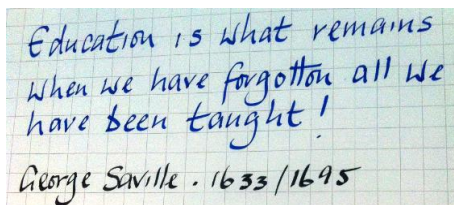 Education is what remains
when we have forgotton all we
have been taught!
George Saville. 1633/1695